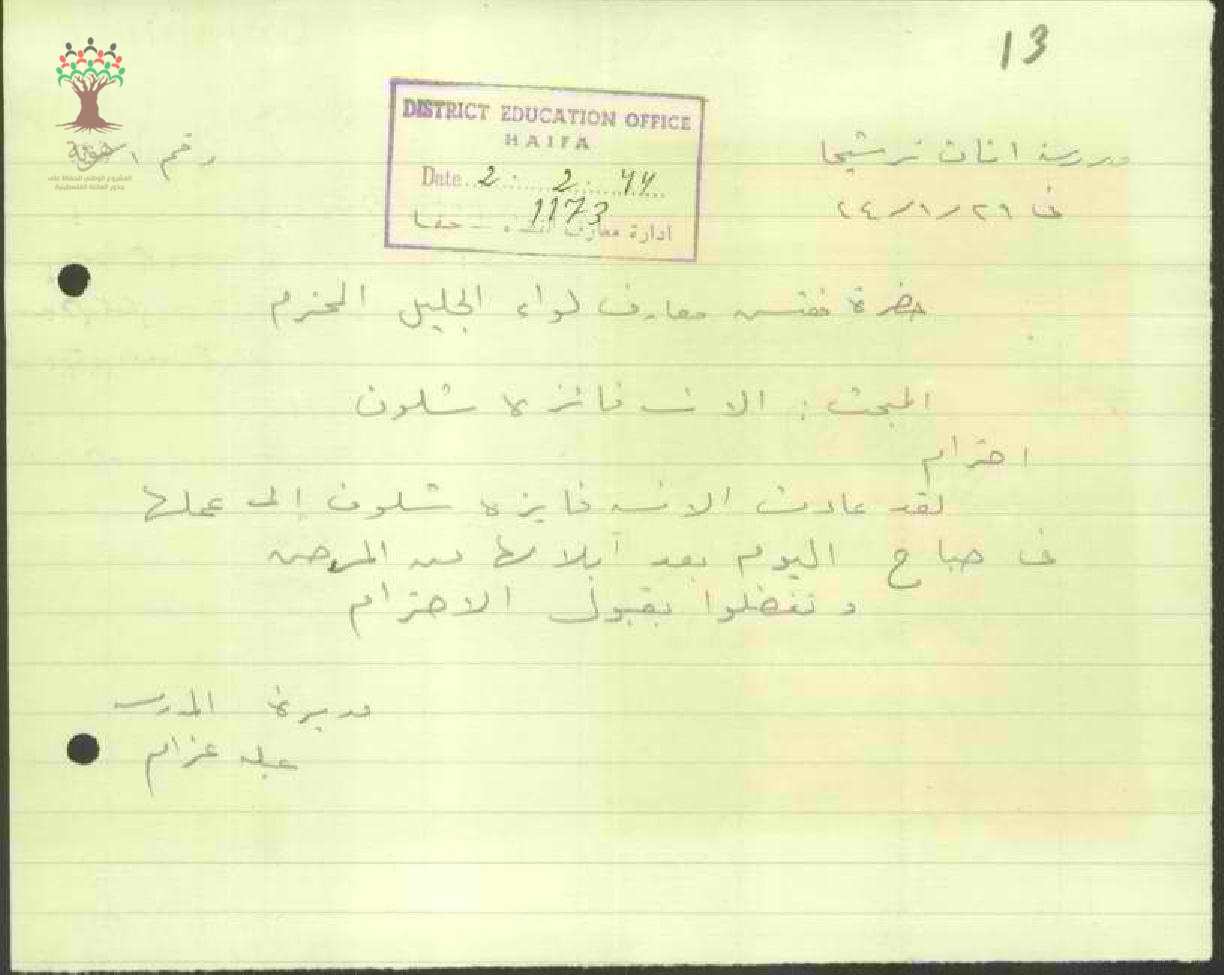 13
DISTRICT EDUCATION OFFICE
HAIFA
Date 2. 2. 44
1173
ادارة معارف حيفا
هوية
المشروع الوطني للحفاظ على
جذور العائلة الفلسطينية
مدرسة اناث ترشيحا
رقم
في ٢٩/١/٤٤
حضرة مفتش معارف لواء الجليل المحترم
المبحث : الانسه فائزه شلون
احترام
لقد عادت الانسه فايزه شلون إلى عملها
في صباح اليوم بعد آبلالها من المرض
وتفضلوا بقبول الاحترام
مديرة المدرسه
عبله عزام